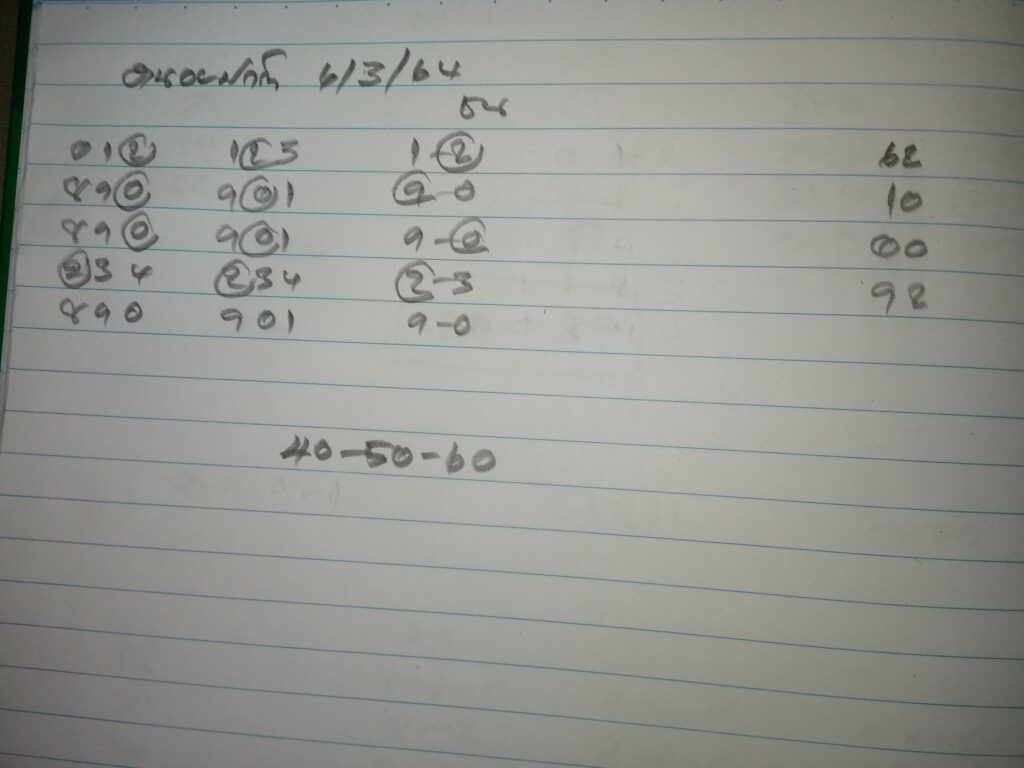 6/3/64
บน
012 123 1-2 62
890 901 9-0 10
890 901 9-0 00
234 234 2-3 92
890 901 9-0
40-50-60